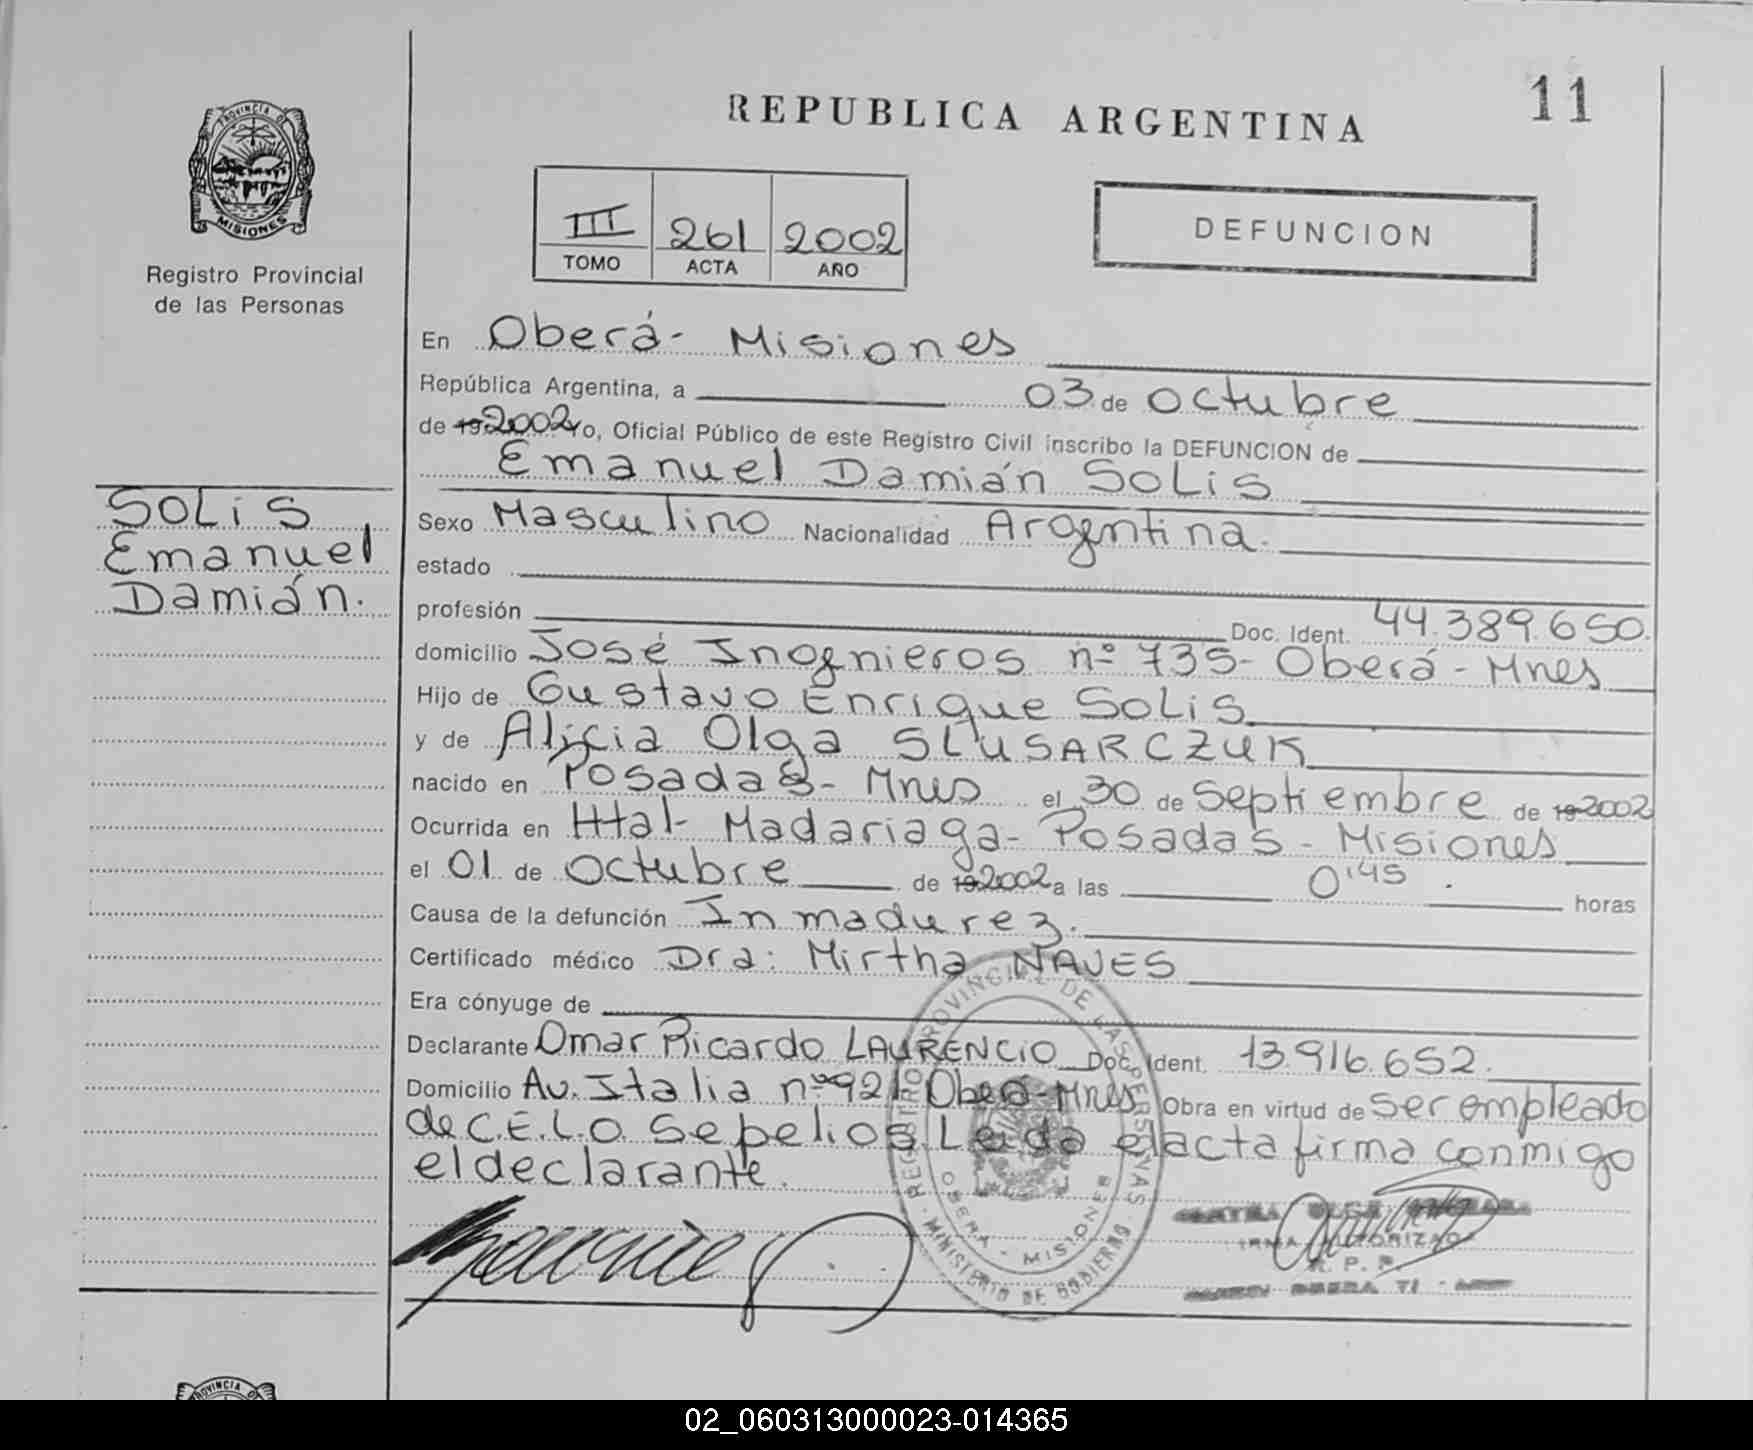 11
REPUBLICA ARGENTINA
PROVINCIA DE MISIONES
Registro Provincial
de las Personas
III 261 2002
TOMO ACTA AÑO
DEFUNCION
SOLiS
Emanuel
Damián.
En Oberá- Misiones
República Argentina, a 03 de octubre
de 19 2002 Yo, Oficial Público de este Registro Civil inscribo la DEFUNCION de
Emanuel Damián SOLiS
Sexo Masculino Nacionalidad Argentina.
estado
profesión Doc. Ident. 44.389.650.
domicilio José Ingenieros nº 735- Oberá - Mnes
Hijo de Gustavo Enrique SOLiS
y de Alicia Olga SLUSARCZUK
nacido en Posadas- Mnes el 30 de Septiembre de 19 2002
Ocurrida en Htal- Madariaga- Posadas - Misiones
el 01 de octubre de 19 2002 a las 0'45 . horas
Causa de la defunción Inmadurez.
Certificado médico Dra: Mirtha NAVES
Era cónyuge de
Declarante Omar Ricardo LAURENCiO Doc. Ident. 13.916.652.
Domicilio Av. Italia nº 921 Oberá-Mnes Obra en virtud de ser empleado
de C.E.L.O. Sepelios. Leída el acta firma conmigo
el declarante.
REGISTRO PROVINCIAL DE LAS PERSONAS
OBERA - MISIONES
MINISTERIO DE GOBIERNO
FIRMA AUTORIZADA
R. P. P.
PROVINCIA DE
02_060313000023-014365